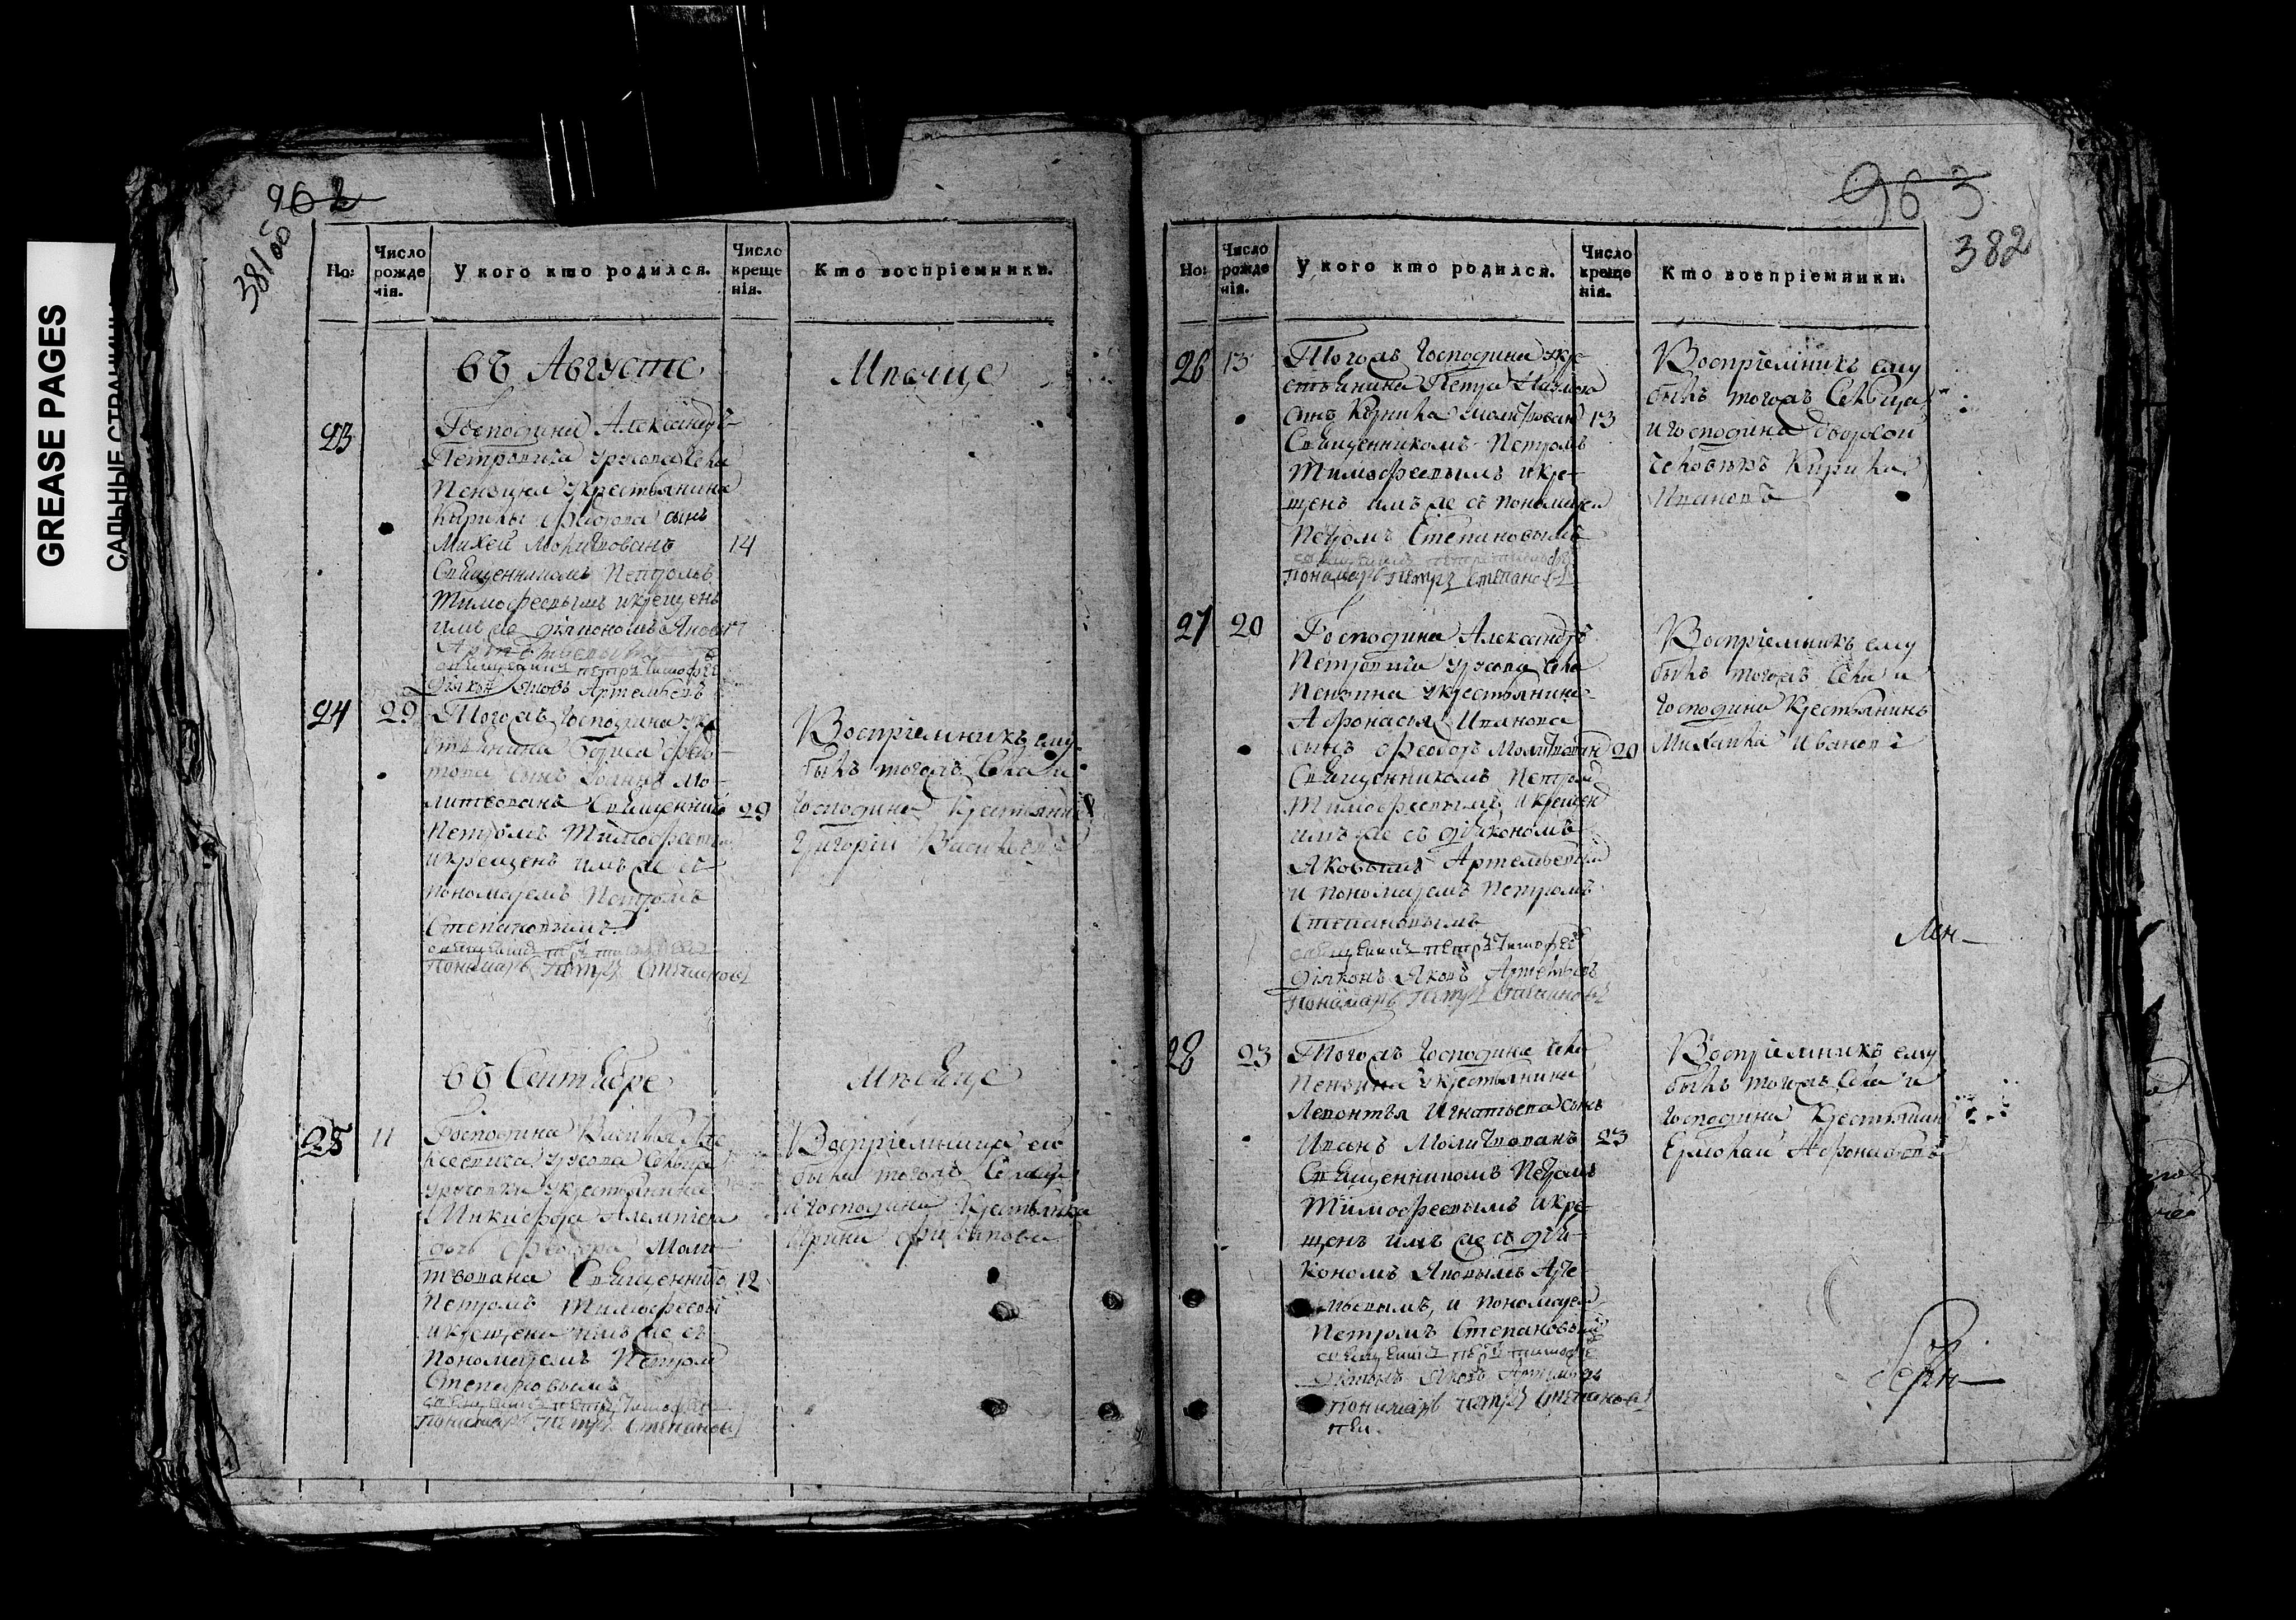 GREASE PAGES
САЛЬНЫЕ СТРАНИЦЫ
962
381 об
Но:
Число рожденія.
У кого кто родился.
Число крещенія.
Кто воспріемники.
въ Августе
Мѣсяце
23
Господина Александръ
Петровича Урусова Села
Пензина укрестьянина
Кирилы Федотова сынъ
Михей Молитвованъ
14
Священникомъ Петромъ
Тимофеевымъ икрещенъ
имъ же
Дияконъ Яковъ Артемьевъ
24
29
Тогожъ Господина укре
стьянина Бориса Фет
това сынъ
Мо
литвованъ Священником
29
Петромъ Тимофеевы
икрещенъ имъ же съ
пономаремъ Петромъ
Степановымъ
пономарь Петръ Степановъ
Воспріемникъ ему
былъ тогожъ Села и
господина Крестьянинъ
Григорій Васильевъ
въ Сентябре
Мѣсяце
25
11
Господина Василья Але
ксеевича Урусова Сельца
укрестьянина
Никифора
дочь Федора Моли
твована Священником
12
Петромъ Тимофеевы
икрещена имъ же съ
Пономаремъ Петром
Степановымъ
пономарь Петръ Степановъ
Воспріемница ей
была тогожъ Сельца
игосподина Крестьянка
Ирина Филипова
963
382
Но:
Число рожденія.
У кого кто родился.
Число крещенія.
Кто воспріемники.
26
13
Тогожъ Господина укре
стьянина Петра Наумова
сынъ
Молитвован
13
Священникомъ Петромъ
Тимофеевымъ икре
щенъ имъ же съ пономарем
Петромъ Степановымъ
пономарь Петръ Степановъ
Воспріемникъ ему
былъ тогожъ Сельца
игосподина дворовой
человѣкъ Кирила
Ивановъ
27
20
Господина Александръ
Петровича Урусова Села
Пензина укрестьянина
Афонасья Иванова
сынъ Феодоръ Молитвован
20
Священникомъ Петром
Тимофеевымъ икрещен
имъ же съ дьякономъ
Яковымъ Артемьевым
и пономаремъ Петромъ
Степановымъ
священникъ Петръ Тимофеев
Дияконъ Яковъ Артемьевъ
Пономарь Петръ Степановъ
Воспріемникъ ему
былъ тогожъ Села и
господина Крестьянинъ
Михайла Ивановъ
28
23
Тогожъ Господина Села
Пензина укрестьянина
Левонтья Игнатьева сынъ
Иванъ Молитвованъ
23
Священникомъ Петромъ
Тимофеевымъ икре
щенъ имъ же съ дья
кономъ Яковымъ Арте
мьевымъ, и пономарем
Петромъ Степановым
пономарь Петръ Степановъ
Воспріемникъ ему
былъ тогожъ Села и
господина Крестьянин
Ермолай Афонасьевъ